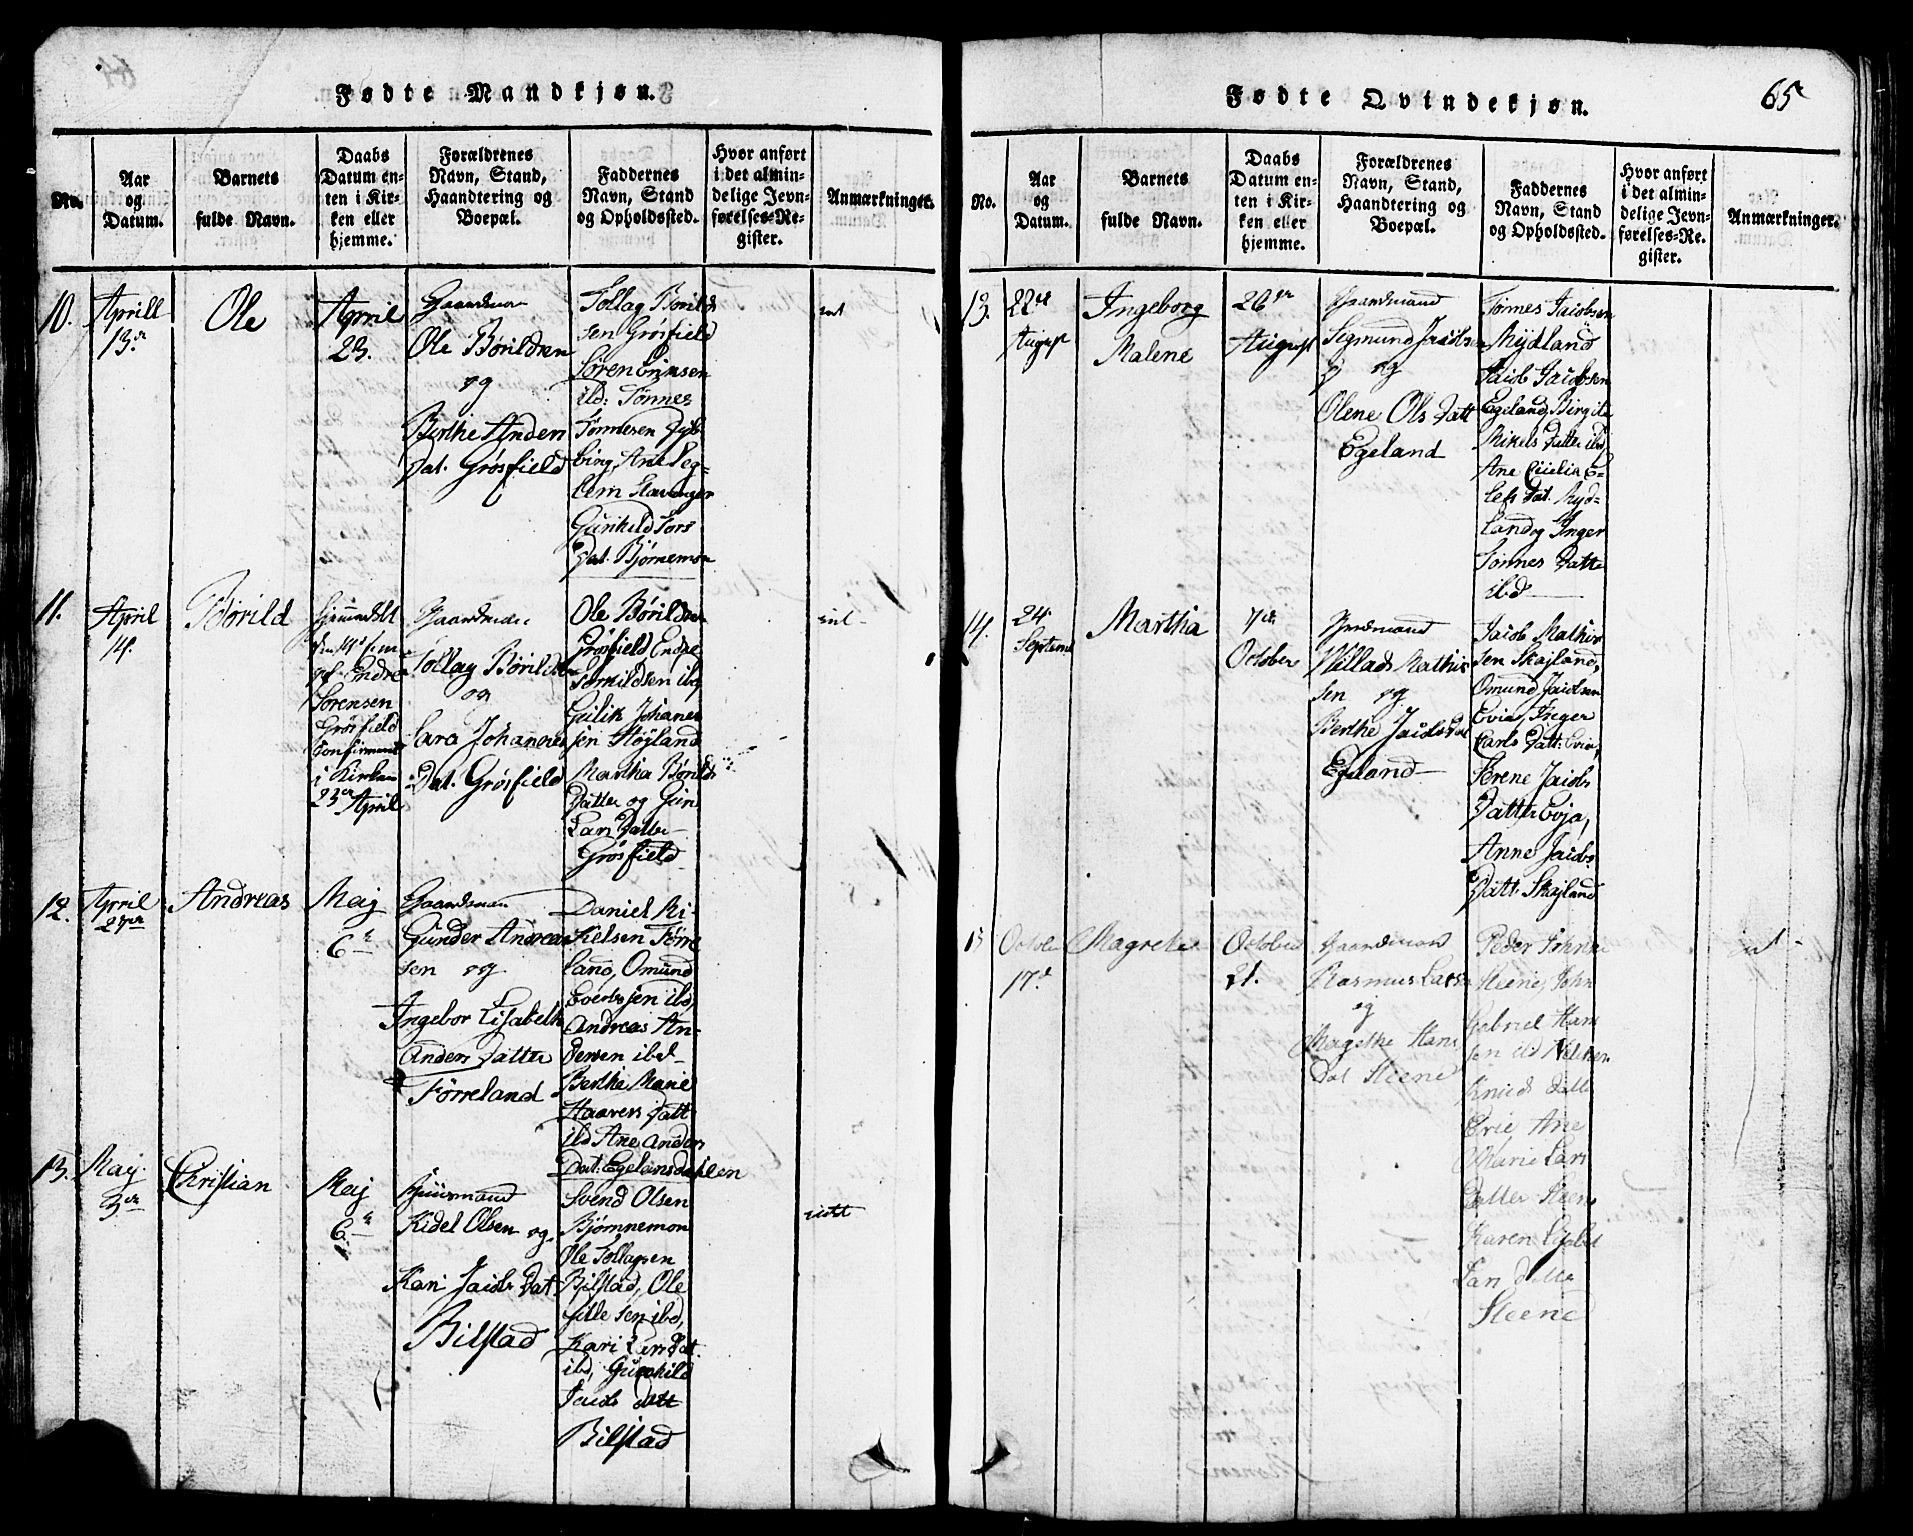 Fødte Mandkjøn.
No.
Aar
og
Datum.
Barnets
fulde Navn.
Daabs
Datum en-
ten i Kir-
ken eller
hjemme.
Forældrenes
Navn, Stand,
Haandtering og
Boepæl.
Faddernes
Navn, Stand
og Opholdssted.
Hvor anført
i det almin-
delige Jevn-
førelses-Re-
gister.
Anmærkninger.
10.
Aprill
13de
Ole
April
23.
Gaardman
Ole Børildsen
og
Berthe Anders
Dat. Grøsfield
Tollag Børilds
sen Grøsfield
Søren
ibd: Tønnes
Tønnesen
Ane
Stavanger
Gunhild Tors
Dat. Bjørnemon
11.
April
14.
Børild
af Endre
Sørensen
Grøsfield
Confirmeret
i Kirken
23de April
Tollag Børilds
og
Johannes
Dat. Grøsfield
Ole Børildsen
Grøsfield
Torkildsen ibd
Johanes
sen Høyland
Martha Børilds
Datter og Gun
Lars Datter
Grøsfield
12.
April
Andreas
Maj
6te
Gaardman
Gunder Andrea
sen og
Ingebor Lisabeth
Anders Datter
Førreland
Daniel Mi-
kelsen Førre
land, Omund
ibd,
Andreas An-
dersen ibd
Berthe Marie
Haavers Datt
ibd Ane Anders
Dat: Egelandsdahlen
13.
May
3de
Christian
Maj
6te
Huusmand
Kidel Olsen og
Kari Jacobs Dat
Bilstad
Svend Olsen
Bjørnnemon
Ole Tollagsen
Bilstad, Ole
sen ibd,
Kari Lars Dat.
ibd, Gunhild
Jacobs datt
Bilstad
Fødte Qvindekjøn.
65
No.
Aar
og
Datum.
Barnets
fulde Navn.
Daabs
Datum en-
ten i Kir-
ken eller
hjemme.
Forældrenes
Navn, Stand,
Haandtering og
Boepæl.
Faddernes
Navn, Stand
og Opholdssted.
Hvor anført
i det almin-
delige Jevn-
førelses-Re-
gister.
Anmærkninger.
13.
22de
August
Ingeborg
Malene
26de
August
Gaardmand
Sigmund Jacobsen
og
Olene Ols Datt
Egeland
Tønnes Jacobsen
Mydland
Jacob Jacobsen
Egeland, Birgite
Mikels Datter ibd
Ane Cicilia E-
lefs Dat. Myd-
land og Inger
Tønnes Datte
ibd
14.
24
Septemb
Martha
7de
October
Gaardmand
Villads Mathis
sen og
Berthe Jacobs Dat
Egeland
Jacob Mathis
sen Skajland,
Omund Jacobsen
Evia, Inger
Carls Datt: Evia,
Serene Jacobs
Datter Evja,
Anne Jacobs
Datt. Skajland
15
Octobe
17de
Magrete
October
21.
Gaardman
Rasmus Lars
og
Magethe Hans
Dat Steene
Peder
Steene, John
Gabriel Hans
sen ibd
Knuds datte
Ane
Marie Lars
Datter Steene
Karen Lisabet
Lars datte
Steene